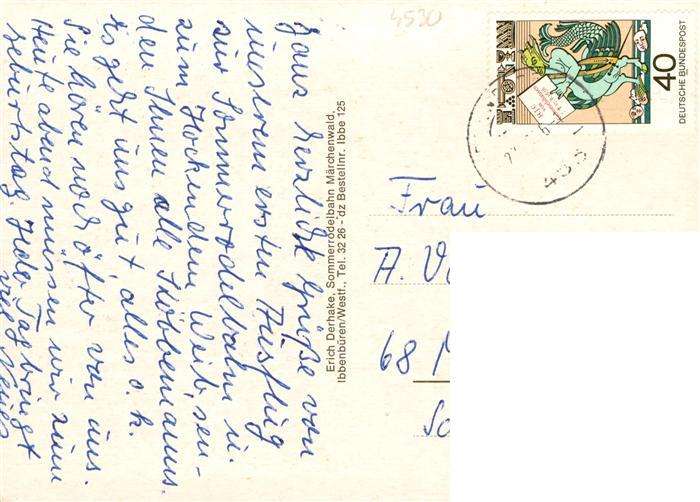 4530
Ganz herzliche Grüße von
unserem ersten Ausflug
zur Sommerrodelbahn u.
zum Hockenden Weib sen-
den Ihnen alle
Es geht uns gut, alles o.k.
Sie hören noch öfter von uns.
Heute abend müssen wir zum
Geburtstag. Jeder Tag bringt
viel Neues
Erich Derhake, Sommerrodelbahn Märchenwald,
Ibbenbüren/Westf., Tel. 32 26 - dz Bestellnr. Ibbe 125
40
DEUTSCHE BUNDESPOST
Frau
A. V
68 M